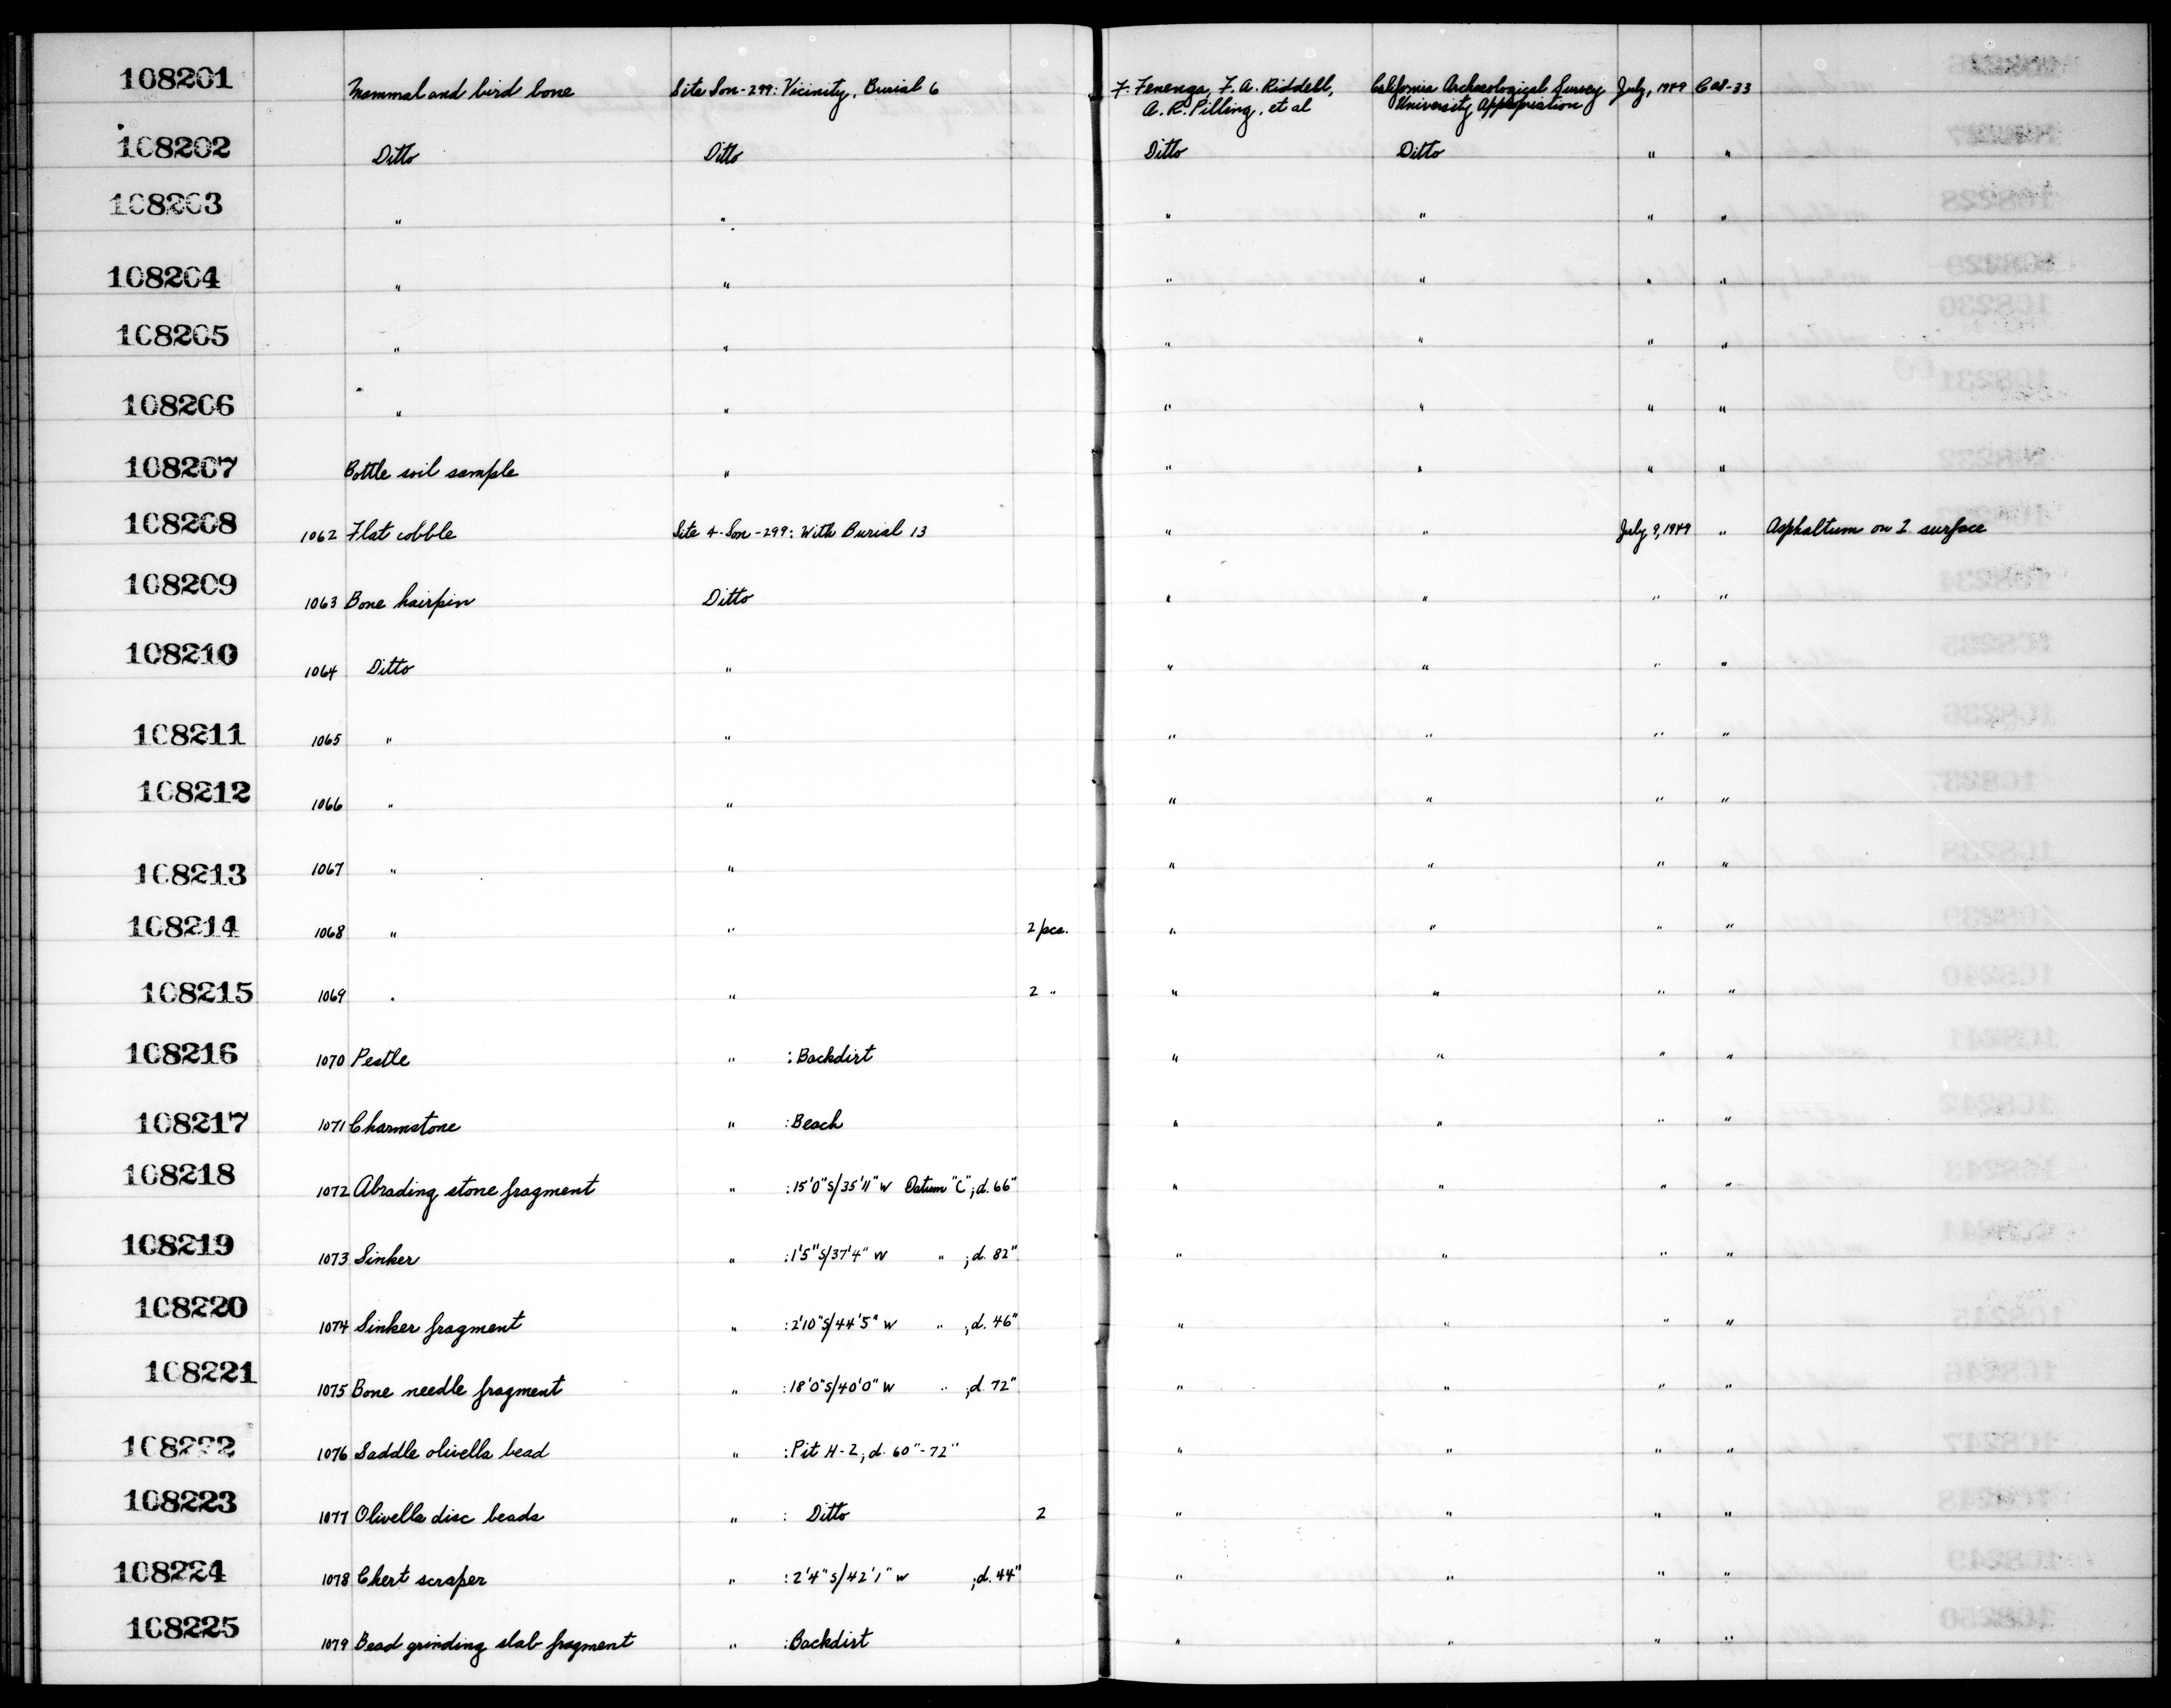 108201 Mammal and bird bone Site Son-299: Vicinity, Burial 6 F. Fenenga, F. A. Riddell, California Archaeological Survey July, 1949 Cas-33
A. R. Pilling, et al University Appropriation
108202 Ditto Ditto Ditto Ditto " "
108203 " " " " " "
108204 " " " " " "
108205 " " " " " "
108206 " " " " " "
108207 Bottle soil sample " " " " "
108208 1062 Flat cobble Site 4-Son-299: With Burial 13 " " July 9, 1949 " Asphaltum on 1 surface
108209 1063 Bone hairpin Ditto " " " "
108210 1064 Ditto " " " " "
108211 1065 " " " " " "
108212 1066 " " " " " "
108213 1067 " " " " " "
108214 1068 " " 2 pcs. " " " "
108215 1069 " " 2 " " " " "
108216 1070 Pestle " : Backdirt " " " "
108217 1071 Charmstone " : Beach " " " "
108218 1072 Abrading stone fragment " : 15'0"S/35'11"W Datum "C"; d. 66" " " " "
108219 1073 Sinker " : 1'5"S/37'4"W " ; d. 82" " " " "
108220 1074 Sinker fragment " : 2'10"S/44'5"W " ; d. 46" " " " "
108221 1075 Bone needle fragment " : 18'0"S/40'0"W " ; d. 72" " " " "
108222 1076 Saddle olivella bead " : Pit H-2; d. 60"-72" " " " "
108223 1077 Olivella disc beads " : Ditto 2 " " " "
108224 1078 Chert scraper " : 2'4"S/42'1"W ; d. 44" " " " "
108225 1079 Bead grinding slab fragment " : Backdirt " " " "